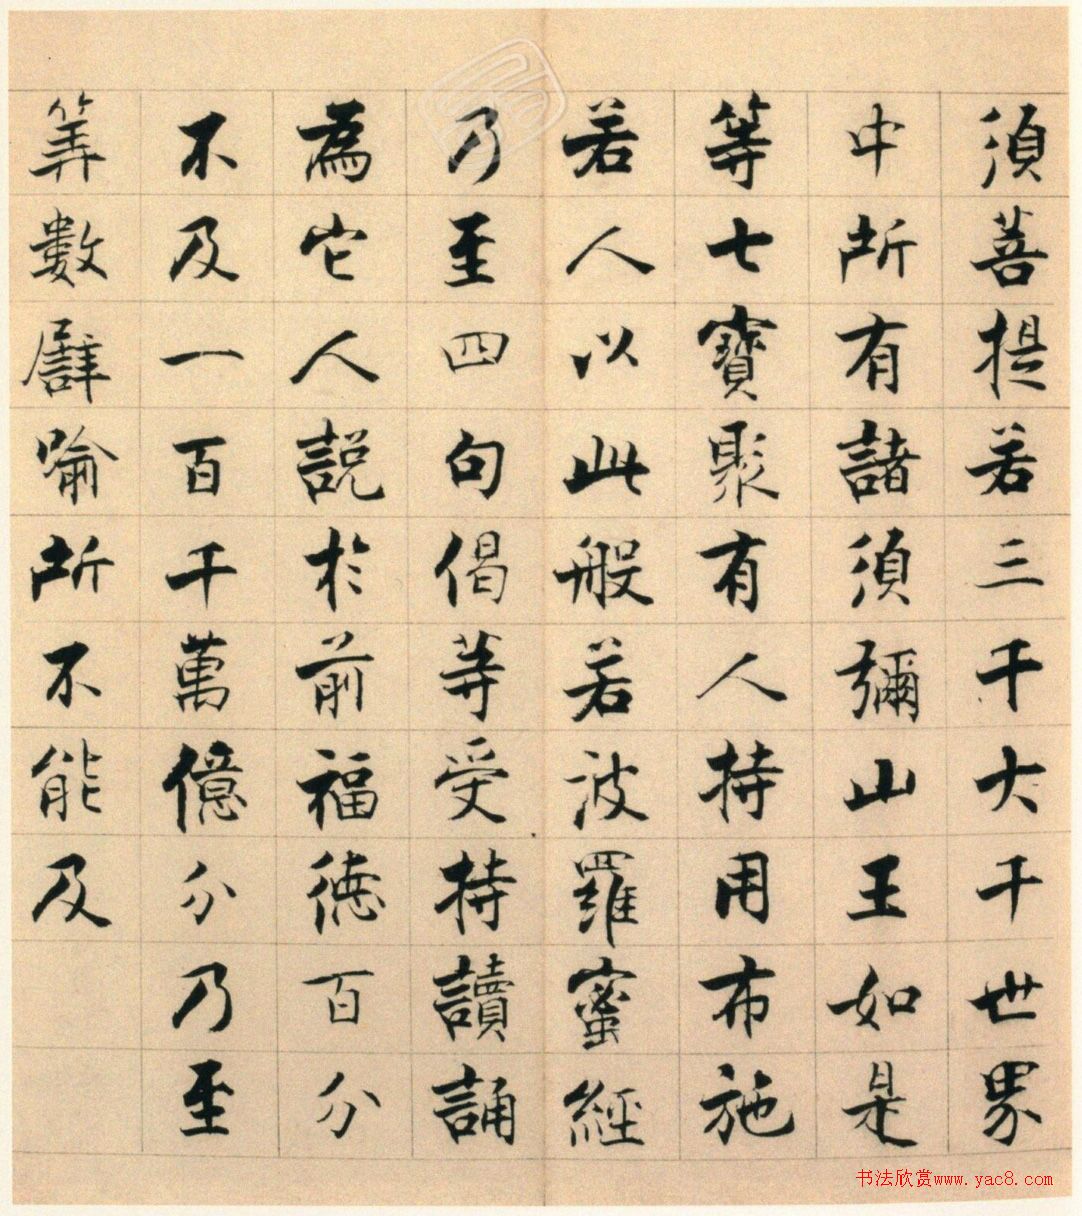 須菩提若三千大千世界
中所有諸須彌山王如是
等七寶聚有人持用布施
若人以此般若波羅蜜經
乃至四句偈等受持讀誦
為它人説於前福德百分
不及一百千萬億分乃至
筭數譬喻所不能及
书法欣赏www.yac8.com